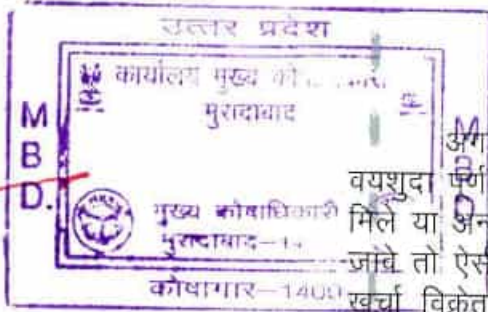 उत्तर प्रदेश
कार्यालय मुख्य
मुरादाबाद
M
B
D.
मुख्य कोषाधिकारी
मुरादाबाद-14
कोषागार-1400
M
B
D
अग
वयशुदा पूर्ण
मिले या अन
जावे तो ऐस
खर्चा विक्रेत